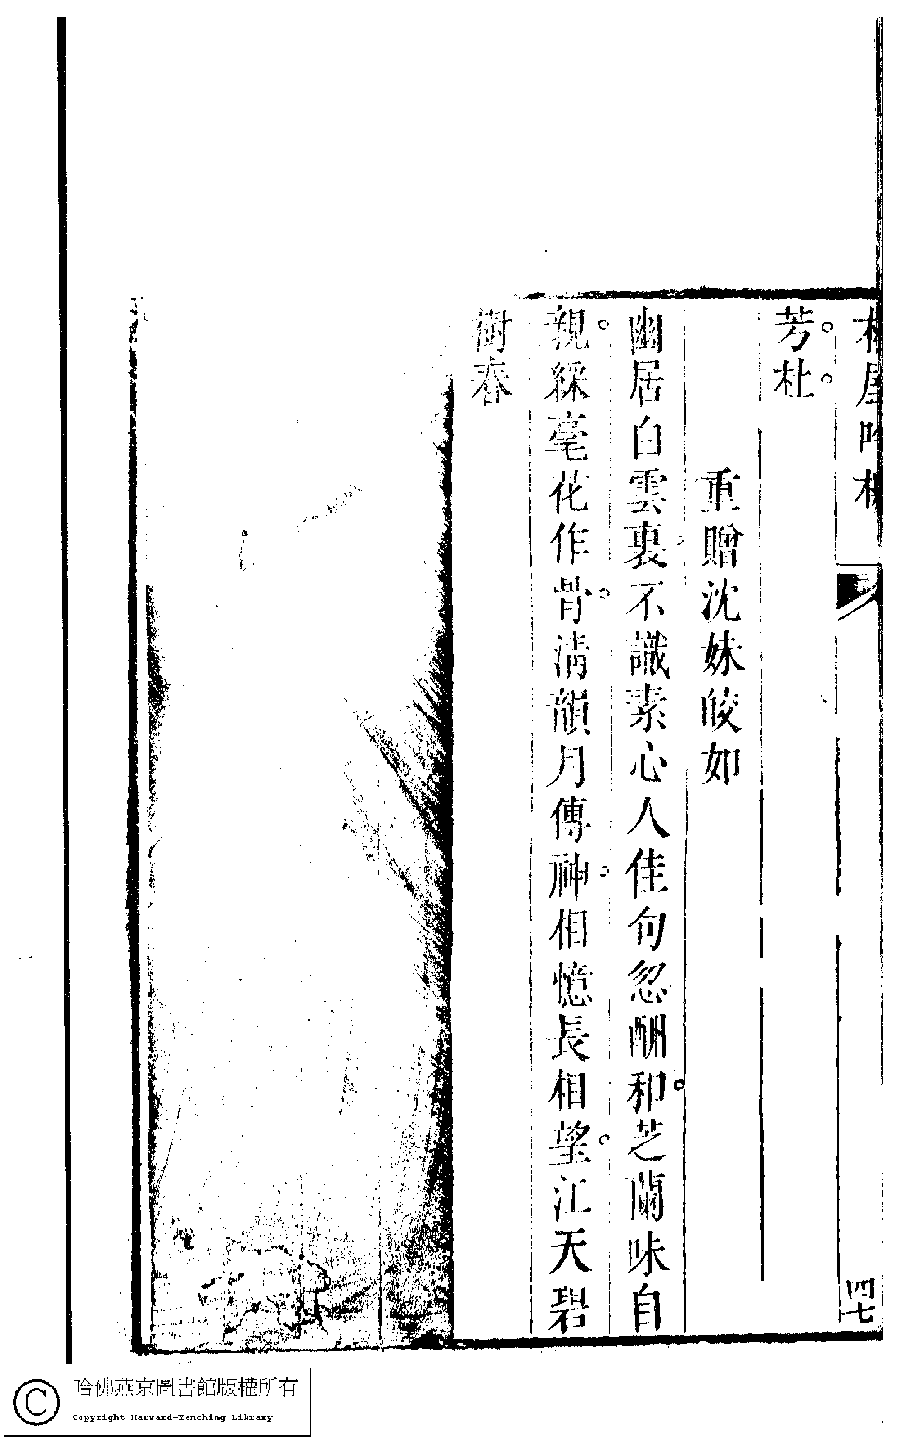 屋吟
四七
芳杜
重贈沈妹皎如
幽居白雲裏不識素心人佳句忽酬和芝蘭味自
親綵毫花作骨清韻月傳神相憶長相望江天碧
樹春
哈佛燕京圖書館版權所有
Copyright Harvard-Yenching Library